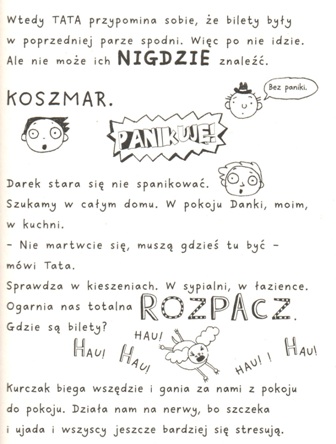 Wtedy TATA przypomina sobie, że bilety były
w poprzedniej parze spodni. Więc po nie idzie.
Ale nie może ich NIGDZIE znaleźć.
Bez paniki.
KOSZMAR.
PANIKUJĘ!
Darek stara się nie spanikować.
Szukamy w całym domu. W pokoju Danki, moim,
w kuchni.
– Nie martwcie się, muszą gdzieś tu być –
mówi Tata.
Sprawdza w kieszeniach. W sypialni, w łazience.
Ogarnia nas totalna ROZPACZ.
Gdzie są bilety?
HAU!
HAU!
HAU!
HAU!
HAU!
Kurczak biega wszędzie i gania za nami z pokoju
do pokoju. Działa nam na nerwy, bo szczeka
i ujada i wszyscy jeszcze bardziej się stresują.